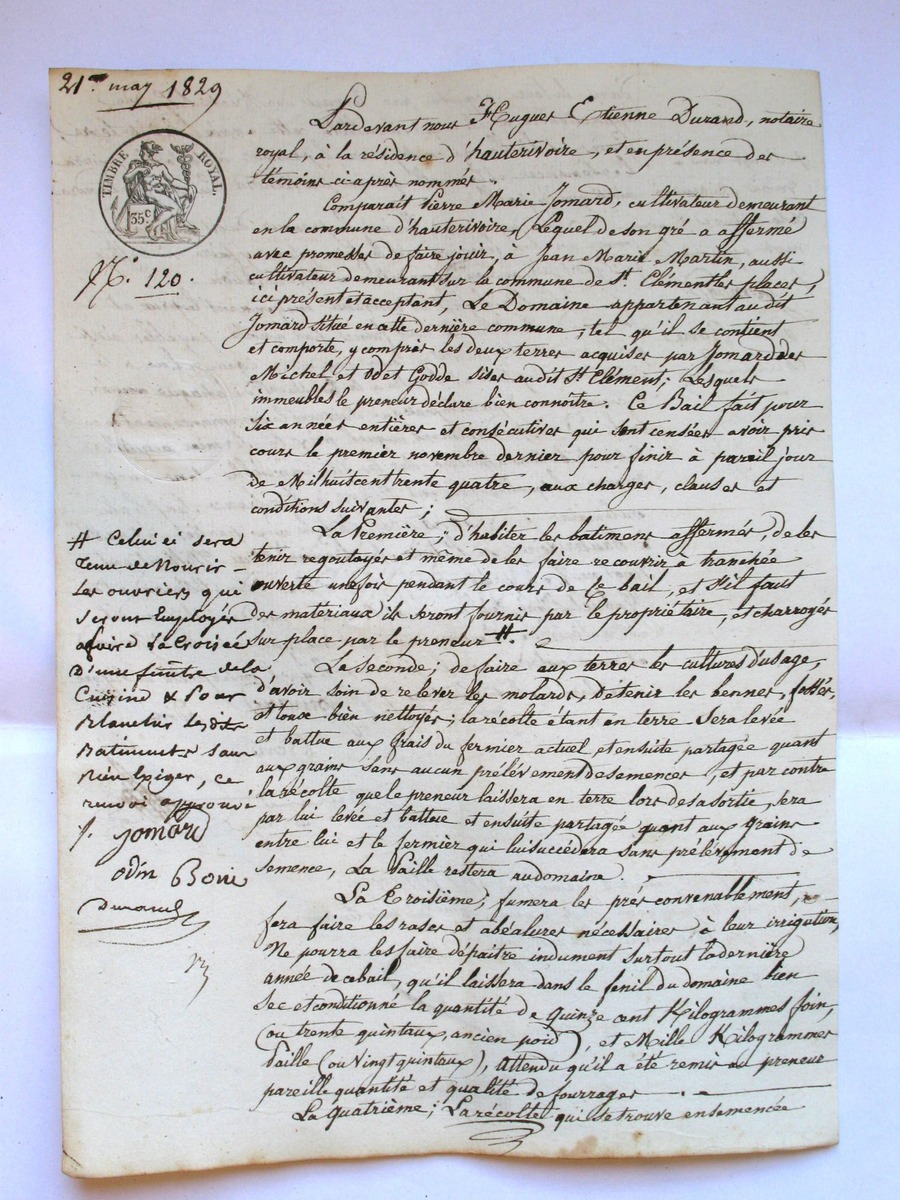 21.e may 1829
TIMBRE ROYAL.
35c
N.o 120.
Pardevant nous Hugues Etienne Durand, notaire
royal, à la résidence d'hauterivoire, et en présence des
témoins ci-après nommés.
Comparait Pierre Marie Jomard, cultivateur demeurant
en la commune d'hauterivoire, Lequel de son gré a affermé
avec promesses de faire jouir, à Jean Marie Martin, aussi
cultivateur demeurant sur la commune de St. Clément les places,
ici présent et acceptant, Le Domaine appartenant au dit
Jomard situé en cette dernière commune; tel qu'il se contient
et comporte, y compris les deux terres acquises par Jomard des
Michel et Odet Godde sises au dit St. Clément; Lesquels
immeubles le preneur déclare bien connoitre. Ce Bail fait pour
Six années entières et consécutives qui sont censées avoir pris
cours le premier novembre dernier pour finir à pareil jour
de Mil huit cent trente quatre, aux charges, clauses et
conditions suivantes;
La Première; d'habiter les batimens affermés, de les
tenir regoutoyés et même de les faire recouvrir à tranchée
ouverte une fois pendant le cours de ce bail, et s'il faut
des matériaux ils seront fournis par le propriétaire, et charroyés
sur place par le preneur #.
La Seconde; de faire aux terres les cultures d'usage,
d'avoir soin de relever les molards, d'étenir les bennes, fossés,
et tout bien nettoyés; la récolte étant en terre sera levée
et battue aux frais du fermier actuel et ensuite partagée quant
aux grains sans aucun prélèvement de semences, et par contre
la récolte que le preneur laissera en terre lors de sa sortie, sera
par lui levée et battue et ensuite partagée quant aux grains
entre lui et le fermier qui lui succédera sans prélèvement de
semence, La Paille restera au domaine.
La Troisième; fumera les prés convenablement,
fera faire les rases et abélalures nécessaires à leur irrigation,
Ne pourra les faire dépaitre indument surtout la dernière
année de ce bail, qu'il laissera dans le fenil du domaine bien
sec et conditionné la quantité de quinze cent Kilogrammes foin,
(ou trente quintaux, ancien poid), et Mille Kilogrammes
Paille (ou Vingt quintaux), attendu qu'il a été remis au preneur
pareille quantité et qualité de fourrages
La Quatrième; La récolte qui se trouve ensemencée
# Celui ci sera
Tenu de Nourir
Les ouvriers qui
Seront Employés
a faire La Croisée
D'une fenêtre de la
Cuisine & Pour
Blanchir lesdits
Batiments sans
Rien Exiger, ce
renvoi approuvé
J.
Jomard
odin Boni
Durand